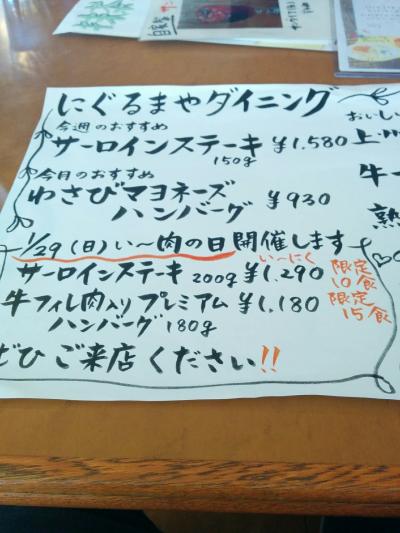 にぐるまやダイニング
今週のおすすめ
サーロインステーキ ¥1.580
150g
今月のおすすめ
わさびマヨネーズ
ハンバーグ ¥930
1/29(日)い〜肉の日開催します
い〜にく
サーロインステーキ 200g ¥1.290 限定10食
牛フィレ肉入りプレミアム ¥1.180 限定15食
ハンバーグ 180g
ぜひご来店ください!!
おいしい
上
牛
熟